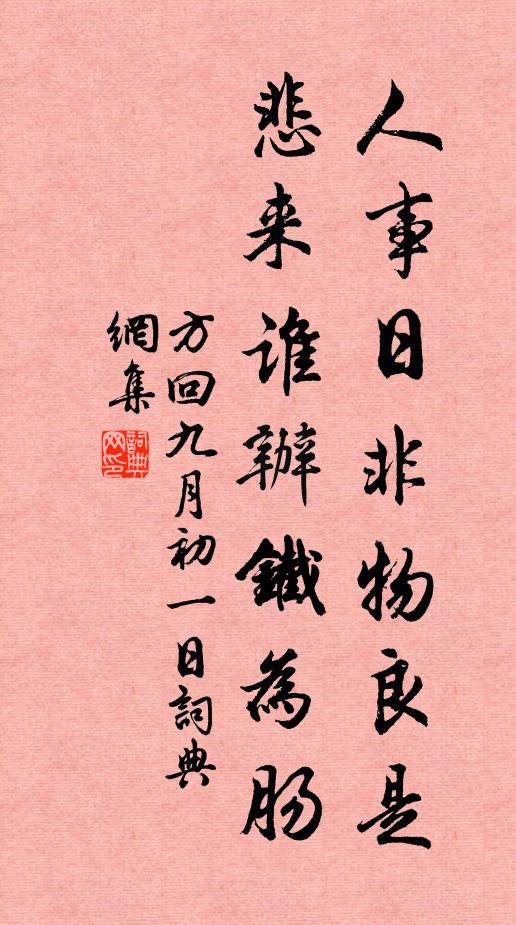 人事日非物良是
悲来谁辦鐵為肠
方回九月初一日詞典
網集
詞典网印